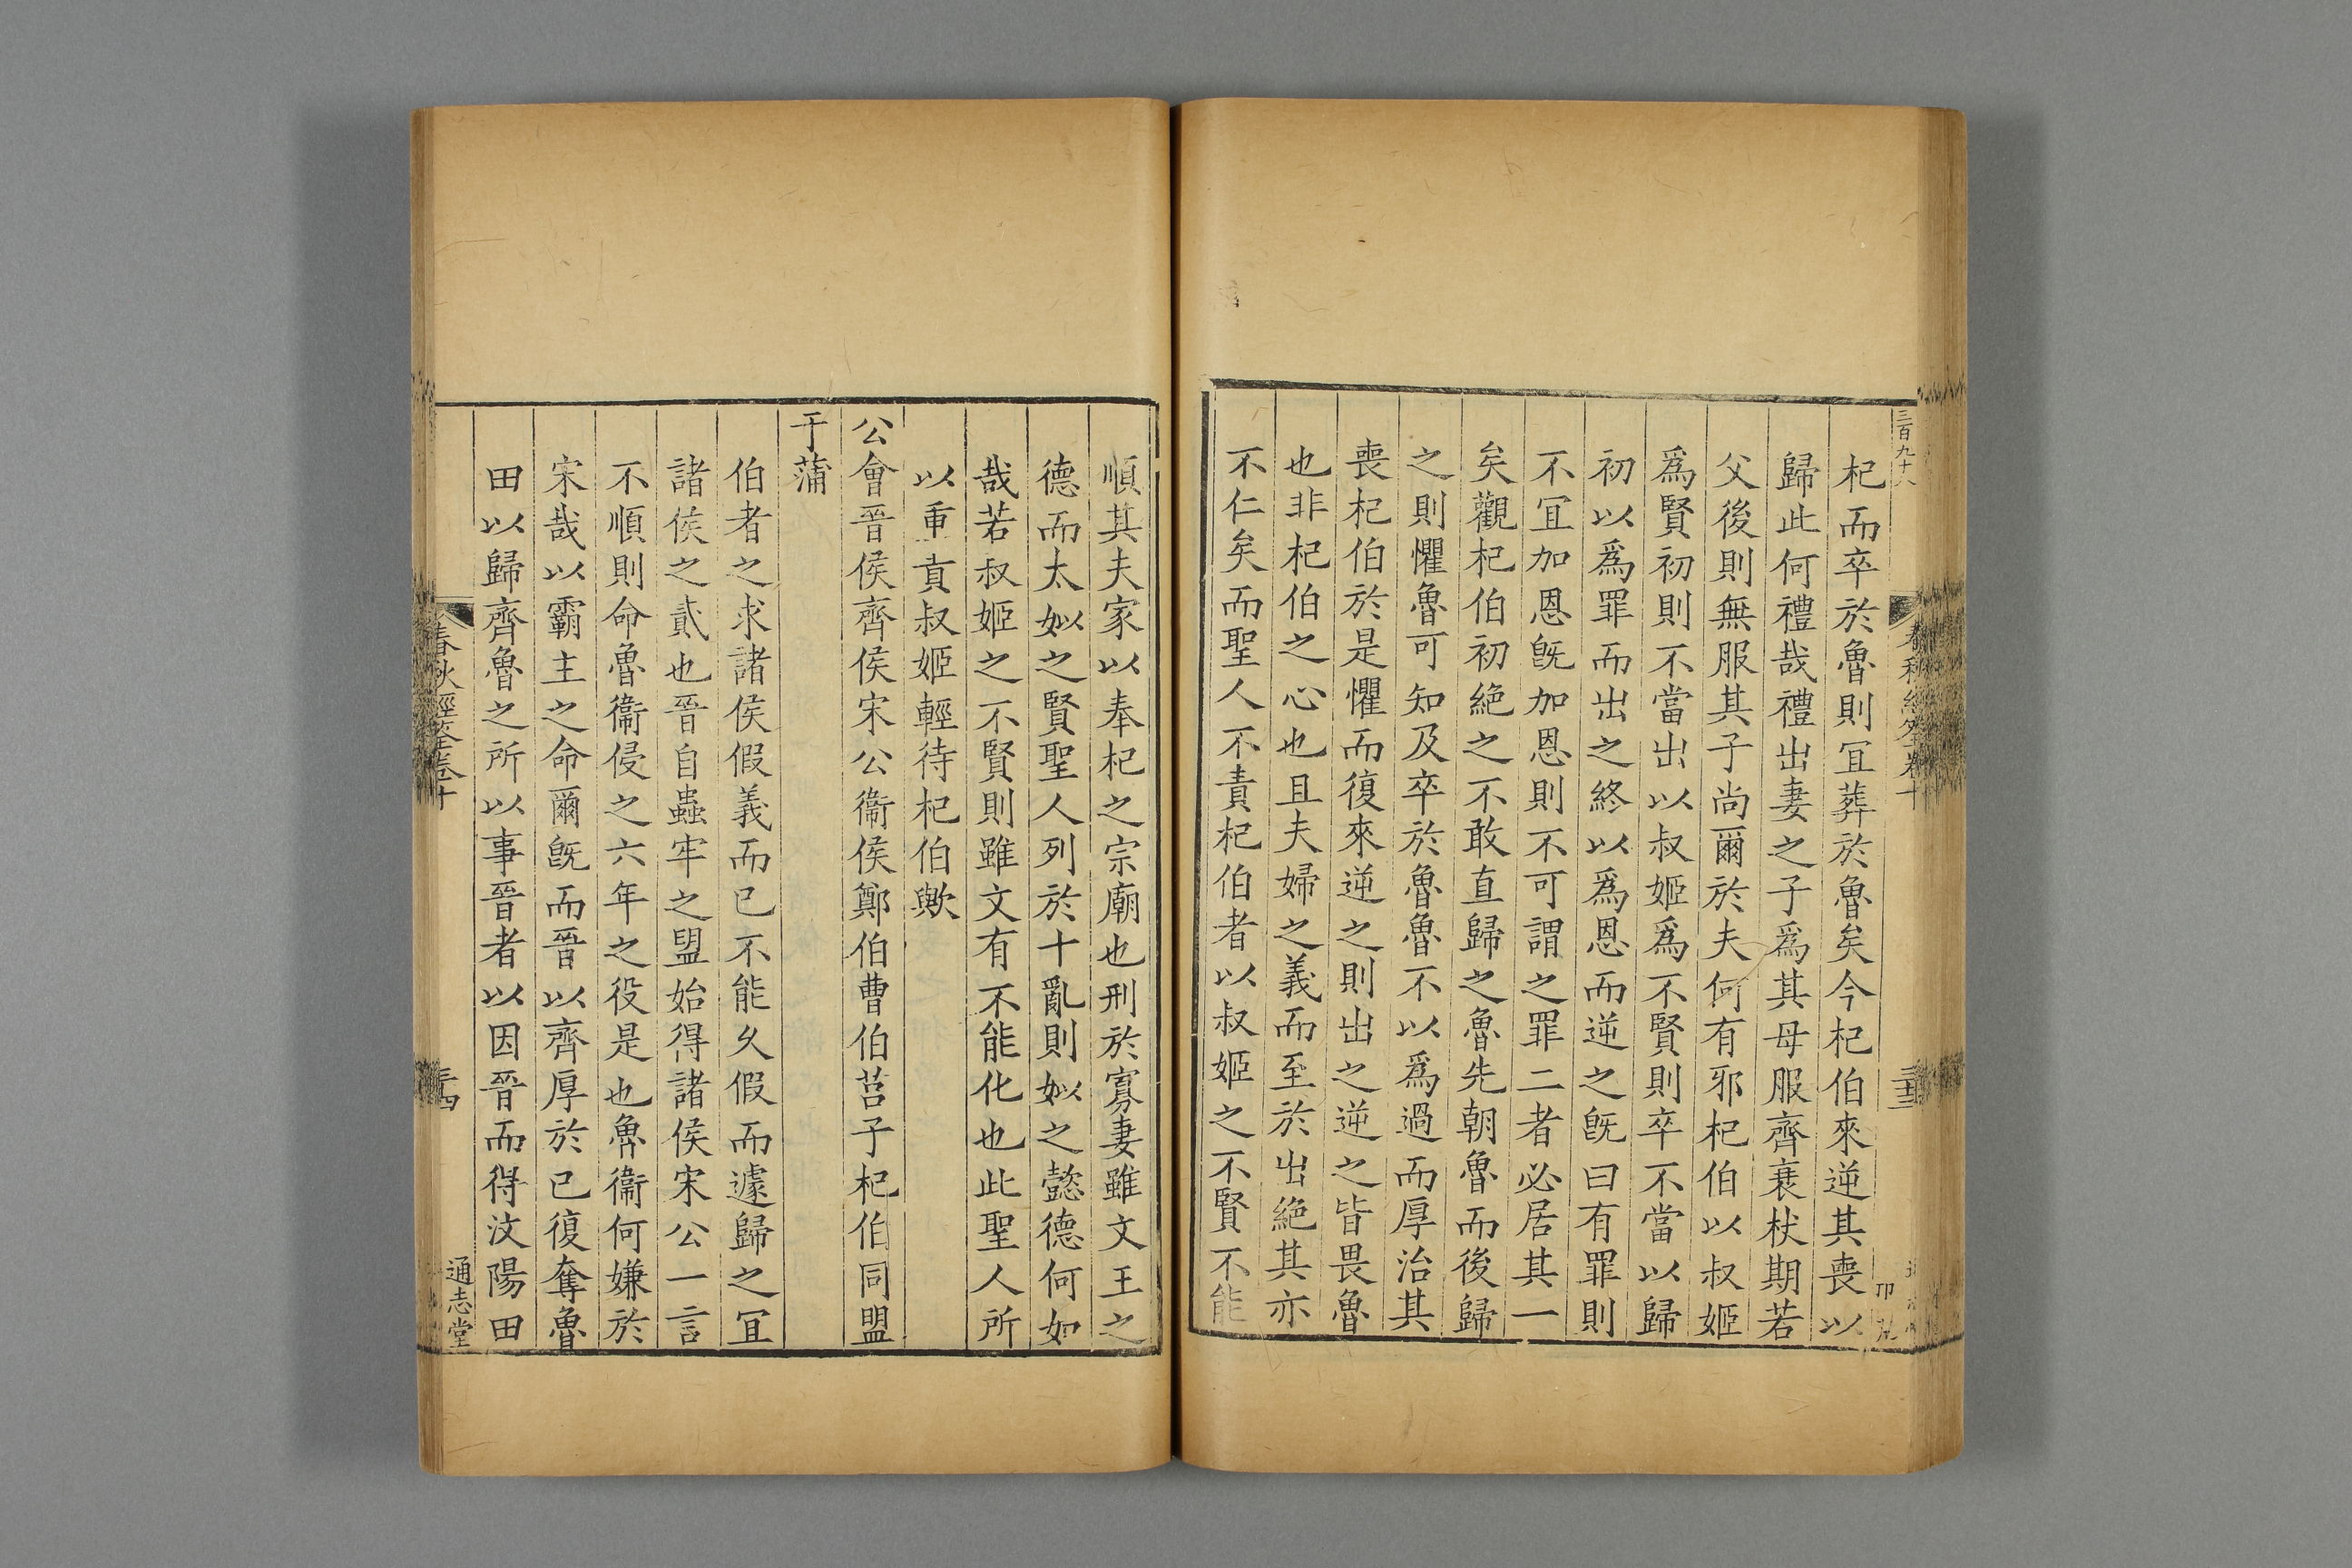 三百九十八
春秋經筌卷十
三十三
杞而卒於魯則冝葬於魯矣今杞伯來逆其喪以
歸此何禮哉禮出妻之子爲其母服齊衰杖期若
父後則無服其子尚爾於夫何有邪杞伯以叔姬
爲賢初則不當出以叔姬爲不賢則卒不當以歸
初以爲罪而出之終以爲恩而逆之旣曰有罪則
不冝加恩旣加恩則不可謂之罪二者必居其一
矣觀杞伯初絶之不敢直歸之魯先朝魯而後歸
之則懼魯可知及卒於魯魯不以爲過而厚治其
喪杞伯於是懼而復來逆之則出之逆之皆畏魯
也非杞伯之心也且夫婦之義而至於出絶其亦
不仁矣而聖人不責杞伯者以叔姬之不賢不能
順其夫家以奉杞之宗廟也刑於寡妻雖文王之
德而太姒之賢聖人列於十亂則姒之懿德何如
哉若叔姬之不賢則雖文有不能化也此聖人所
以重責叔姬輕待杞伯歟
公會晉侯齊侯宋公衞侯鄭伯曹伯莒子杞伯同盟
于蒲
伯者之求諸侯假義而已不能乆假而遽歸之冝
諸侯之貳也晉自蟲牢之盟始得諸侯宋公一言
不順則命魯衞侵之六年之役是也魯衞何嫌於
宋哉以霸主之命爾旣而晉以齊厚於已復奪魯
田以歸齊魯之所以事晉者以因晉而得汶陽田
春秋經筌卷十
三十四
通志堂